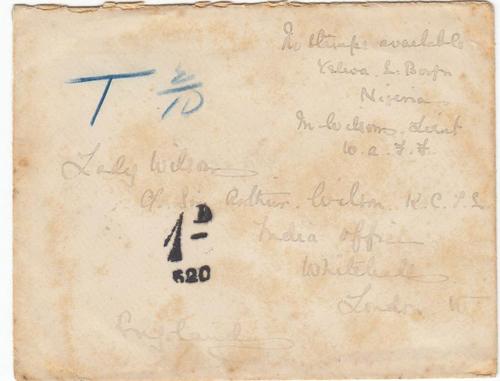 No stamps available
Yelwa. L. Borgu
Nigeria
M Wilson. Lieut
W. A. F. F.
T 2/10
Lady Wilson
C/o Sir Arthur Wilson K.C.
India Office
Whitehall
London W
England
1D
520